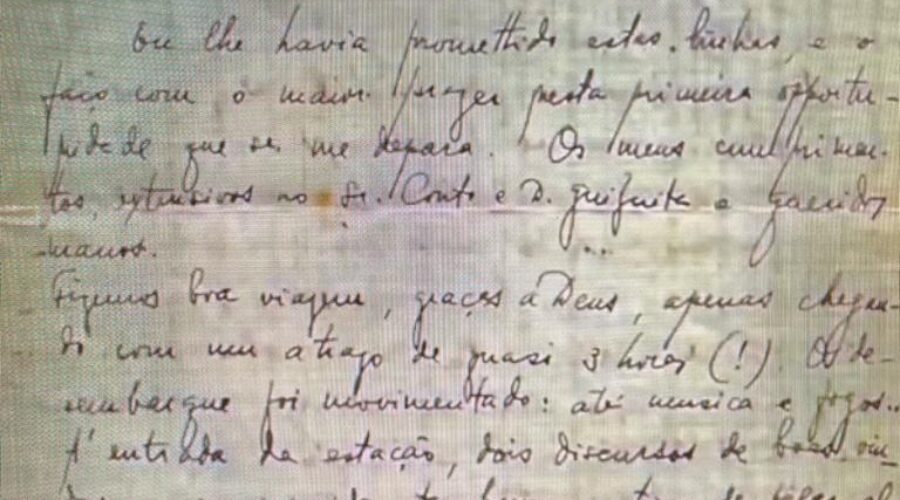 Eu lhe havia promettido estas linhas, e o
faço com o maior prazer nesta primeira opportu-
nidade que se me depara. Os meus cumprimen-
tos, extensivos ao Sr. Couto e D. e queridos
manos.
Fizemos boa viagem, graças a Deus, apenas chegan-
do com um atrazo de quasi 3 horas (!). O de-
sembarque foi movimentado: até musica e fogos..
A' entrada da estação, dois discursos de boas vin-